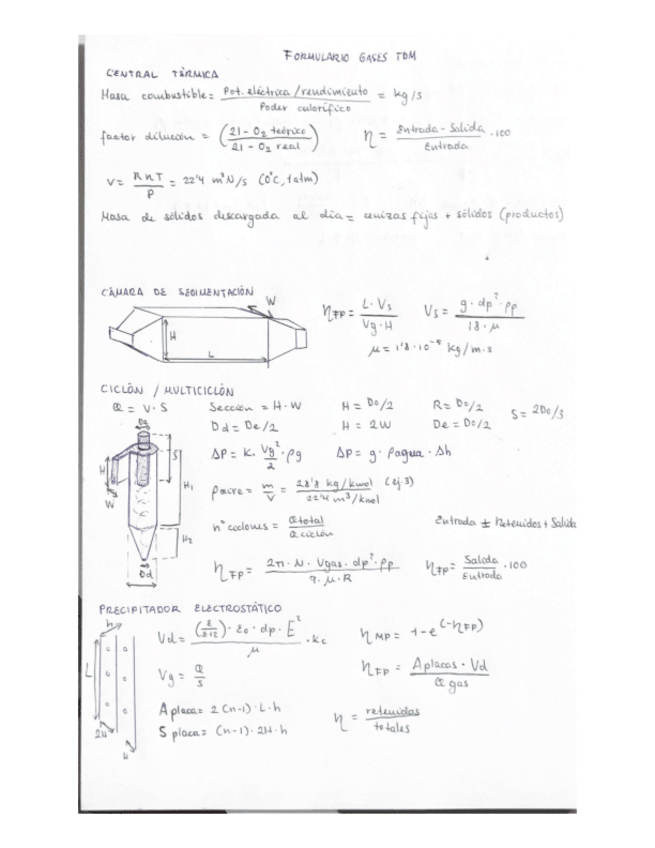 FORMULARIO GASES TDM
CENTRAL TÉRMICA
Masa combustible = Pot. eléctrica / rendimiento / Poder calorífico = kg/s
factor dilución = (21 - O₂ teórico / 21 - O₂ real)   η = Entrada - Salida / Entrada · 100
V = R n T / P = 22'4 m³N/s (0°C, 1 atm)
Masa de sólidos descargada al día = cenizas fijas + sólidos (productos)
CÁMARA DE SEDIMENTACIÓN
W
H
L
η_FP = L · Vs / Vg · H   Vs = g · dp² · ρp / 18 · μ
μ = 1'8 · 10⁻⁵ kg/m·s
CICLÓN / MULTICICLÓN
Q = V · S   Sección = H · W   H = Do/2   R = Do/2   S = 2Do/3
Dd = De/2   H = 2W   De = Do/2
De
S
H
W
H₁
H₂
Dd
ΔP = K · Vg²/2 · ρg   ΔP = g · ρagua · Δh
ρaire = m/V = 28'8 kg/kmol / 22'4 m³/kmol (ej. 3)
nº ciclones = Q total / Q ciclón   Entrada ± Retenidos + Salida
η_FP = 2π · N · Vgas · dp² · ρp / 9 · μ · R   η_FP = Salida / Entrada · 100
PRECIPITADOR ELECTROSTÁTICO
h
L
2H
H
Vd = (ε/ε+2) · ε₀ · dp · E² / μ · Kc   η_MP = 1 - e^(-η_FP)
Vg = Q/S   η_FP = A placas · Vd / Q gas
A placa = 2 (n-1) · L · h
S placa = (n-1) · 2H · h   η = retenidos / totales